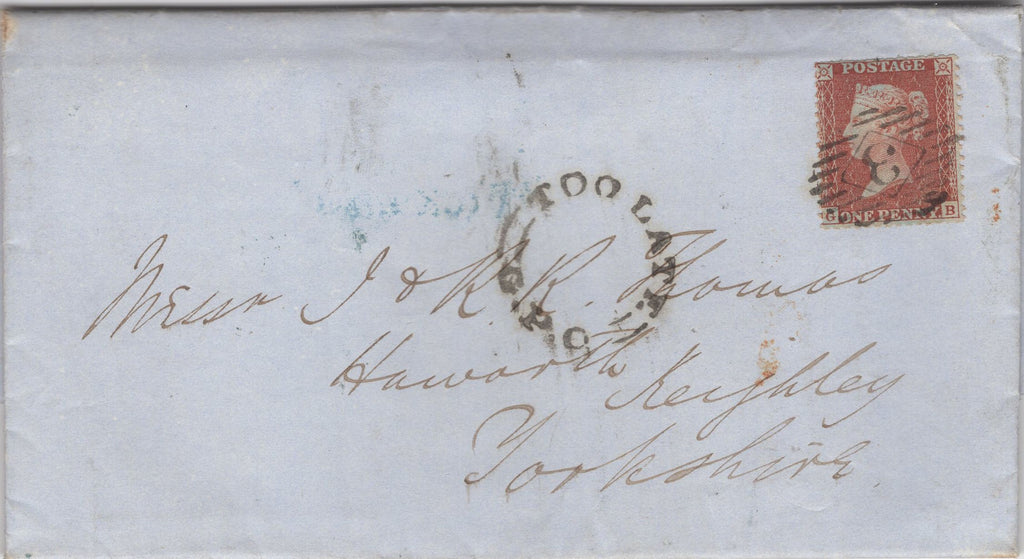 POSTAGE
8
G ONE PENNY B
TOO LATE
G.P.O.
Messrs J & R. R. Thomas
Haworth Keighley
Yorkshire